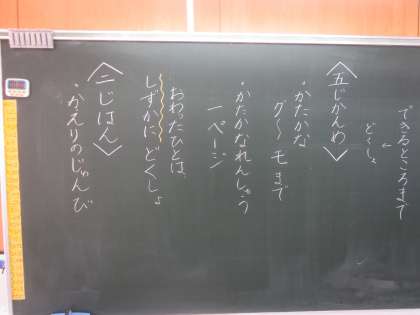 できるところまで
↓
どくしょ
〈五じかんめ〉
・かたかな
グ〜モまで
・かたかなれんしゅう
一ページ
おわったひとは、
しずかにどくしょ
〈二じはん〉
・かえりのじゅんび